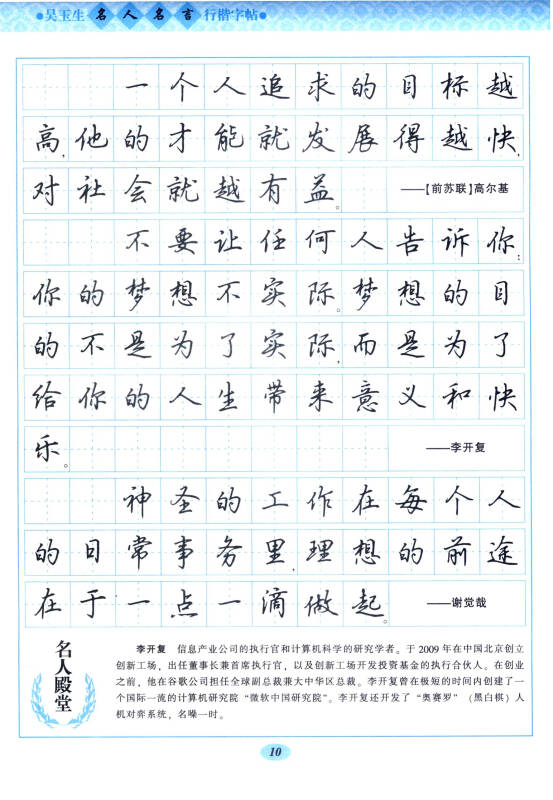 吴玉生名人名言行楷字帖
一个人追求的目标越
高,他的才能就发展得越快,
对社会就越有益。 ——[前苏联]高尔基
不要让任何人告诉你:
你的梦想不实际。梦想的目
的不是为了实际,而是为了
给你的人生带来意义和快
乐。 ——李开复
神圣的工作在每个人
的日常事务里,理想的前途
在于一点一滴做起。 ——谢觉哉
名人殿堂
李开复 信息产业公司的执行官和计算机科学的研究学者。于2009年在中国北京创立
创新工场,出任董事长兼首席执行官,以及创新工场开发投资基金的执行合伙人。在创业
之前,他在谷歌公司担任全球副总裁兼大中华区总裁。李开复曾在极短的时间内创建了一
个国际一流的计算机研究院“微软中国研究院”。李开复还开发了“奥赛罗”(黑白棋)人
机对弈系统,名噪一时。
10